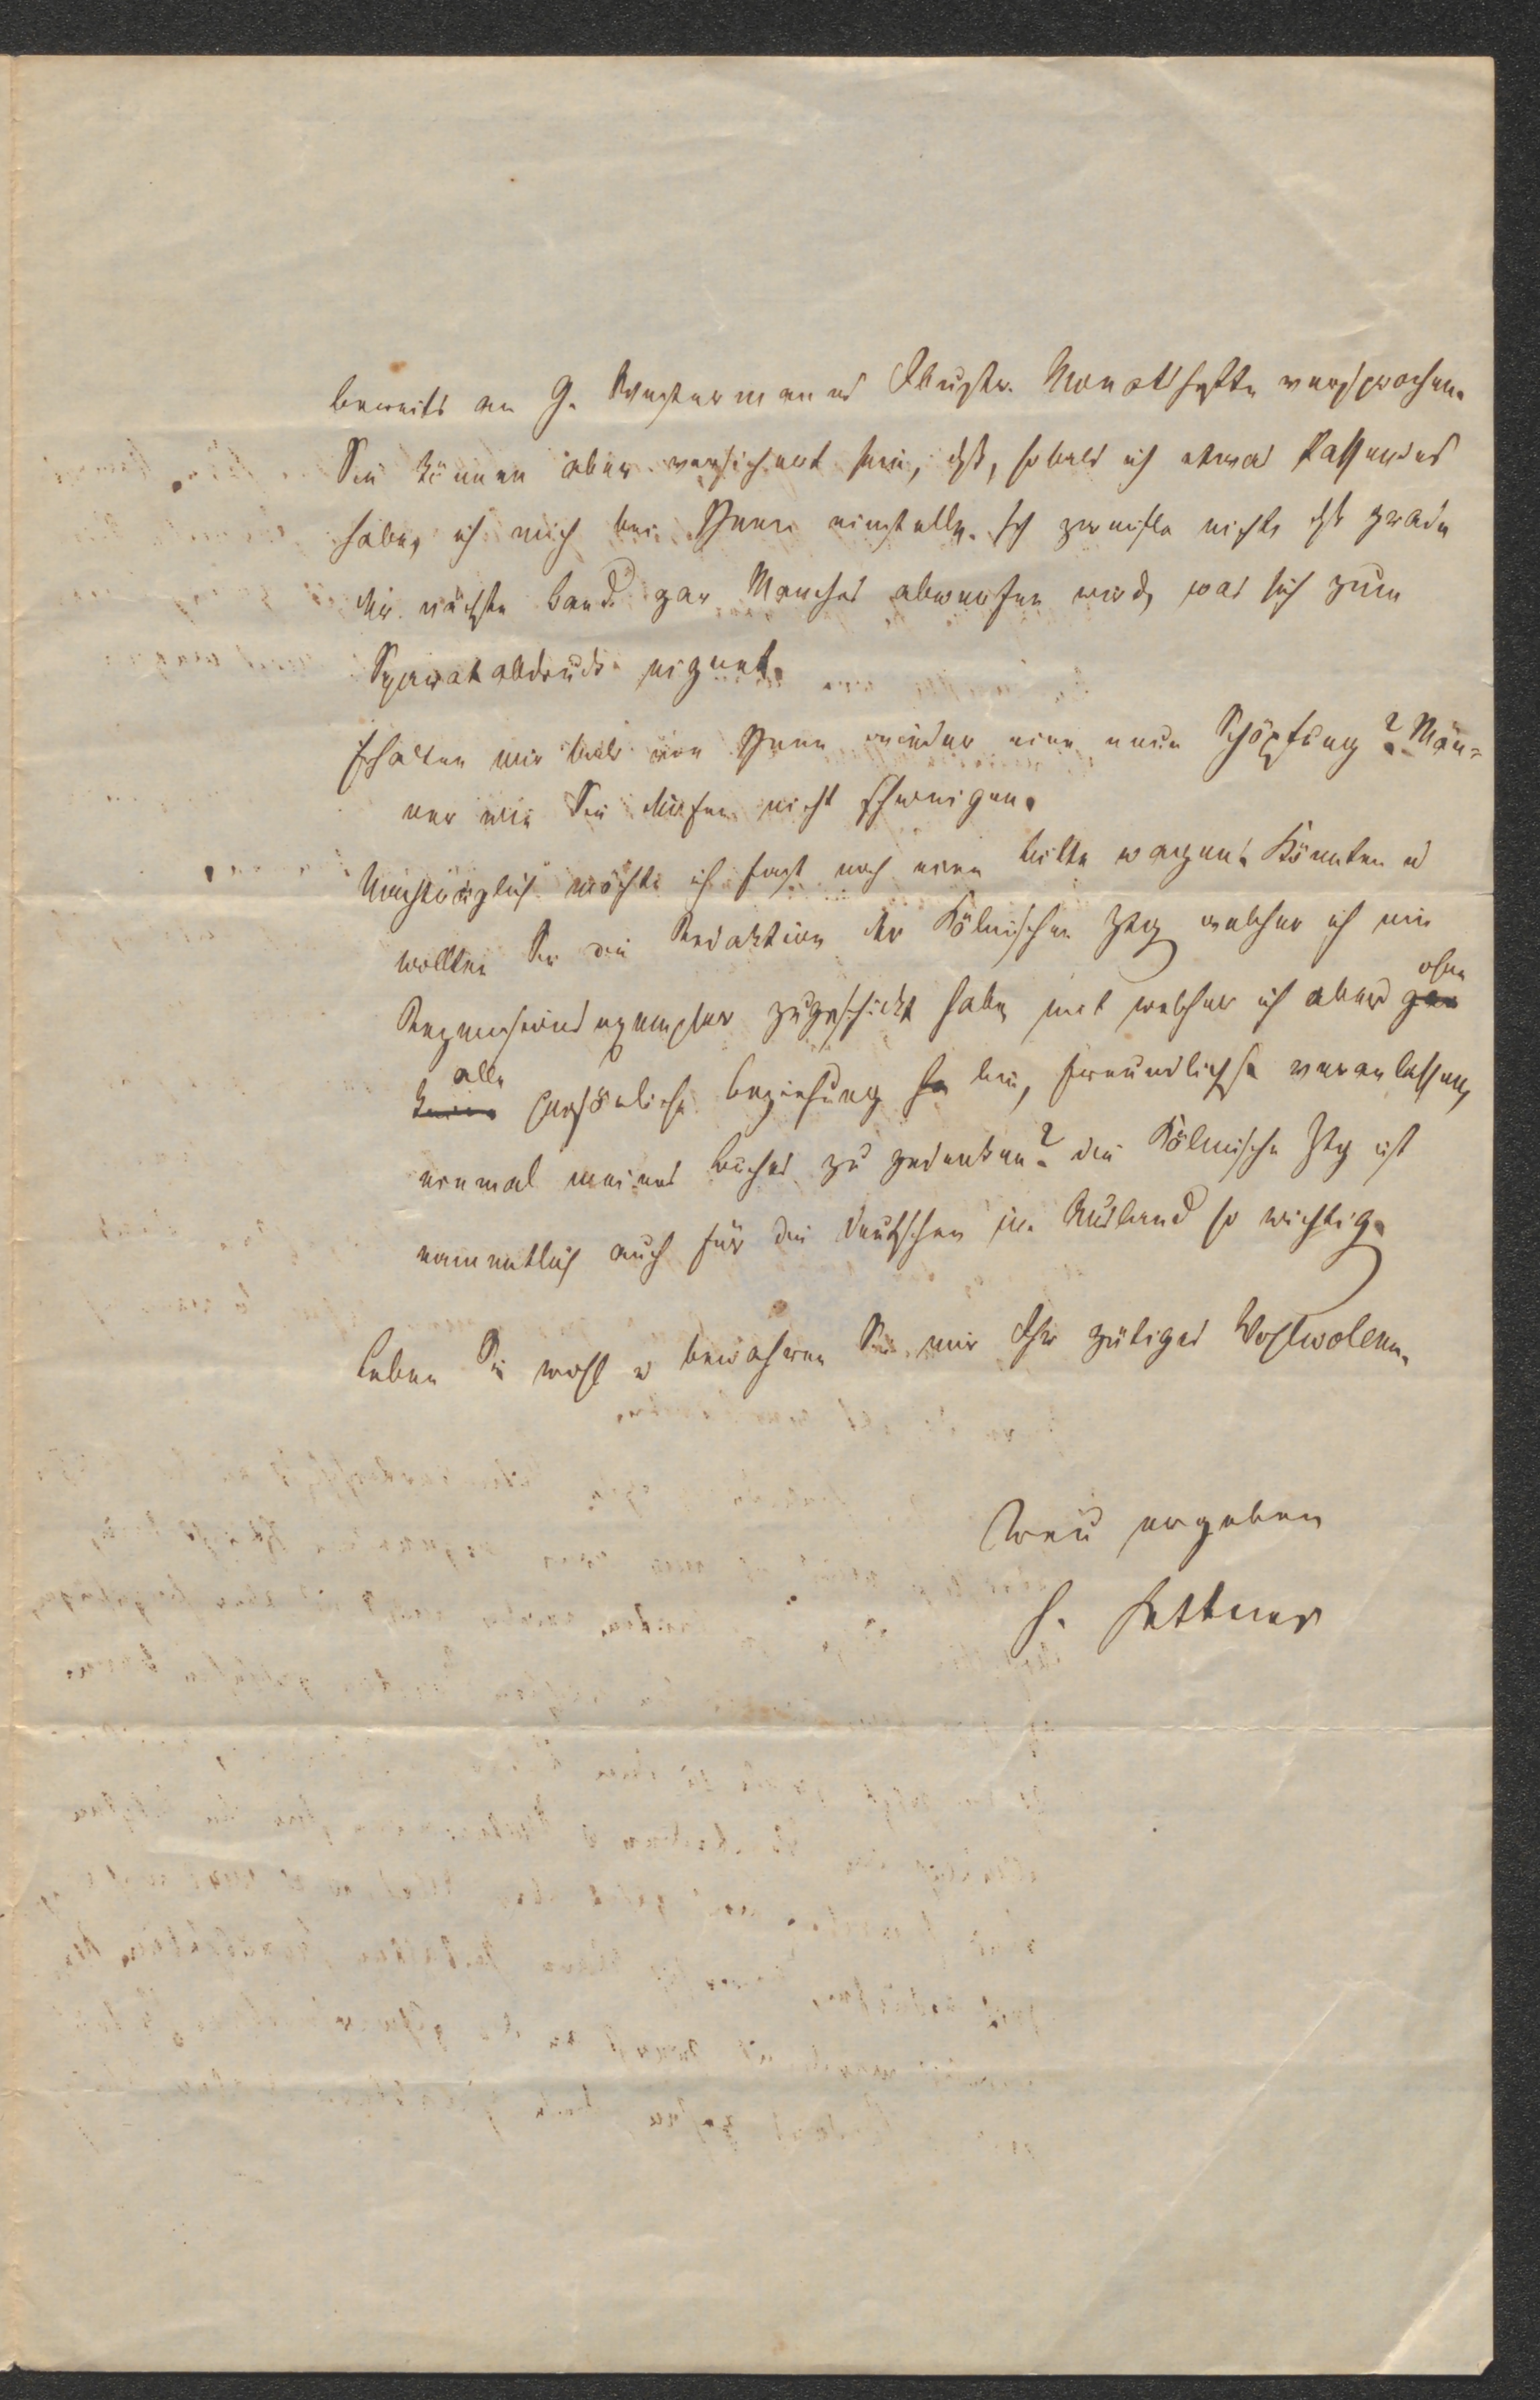 bereits an G. Westermanns Illustr. Monatshefte versprochen.
Sie können aber versichert sein, dß, sobald ich etwas Passendes
habe, ich mich bei Ihnen einstelle. Ich zweifle nicht, dß grade
der nächste Band gar Manches abwerfen wird, was sich zum
Separatabdruck eignet.
Erhalten wir bald von Ihnen wieder eine neue Schöpfung? Män-
ner wie Sie dürfen nicht schweigen.
möchte ich fast noch eine Bitte wagen. Könnten u
wollten Sie die Redaktion der Kölnischen Ztg welcher ich ein
Rezensionsexemplar zugeschickt habe, mit welcher ich aber gar ohne
keine alle persönliche Beziehung ha bin, freundlichst veranlassen,
einmal meines Buches zu gedenken? Die Kölnische Ztg ist
namentlich auch für die Deutschen im Ausland so wichtig.
Leben Sie wohl u bewahren Sie mir Ihr gütiges Wohlwollen.
Treu ergeben
H. Hettner